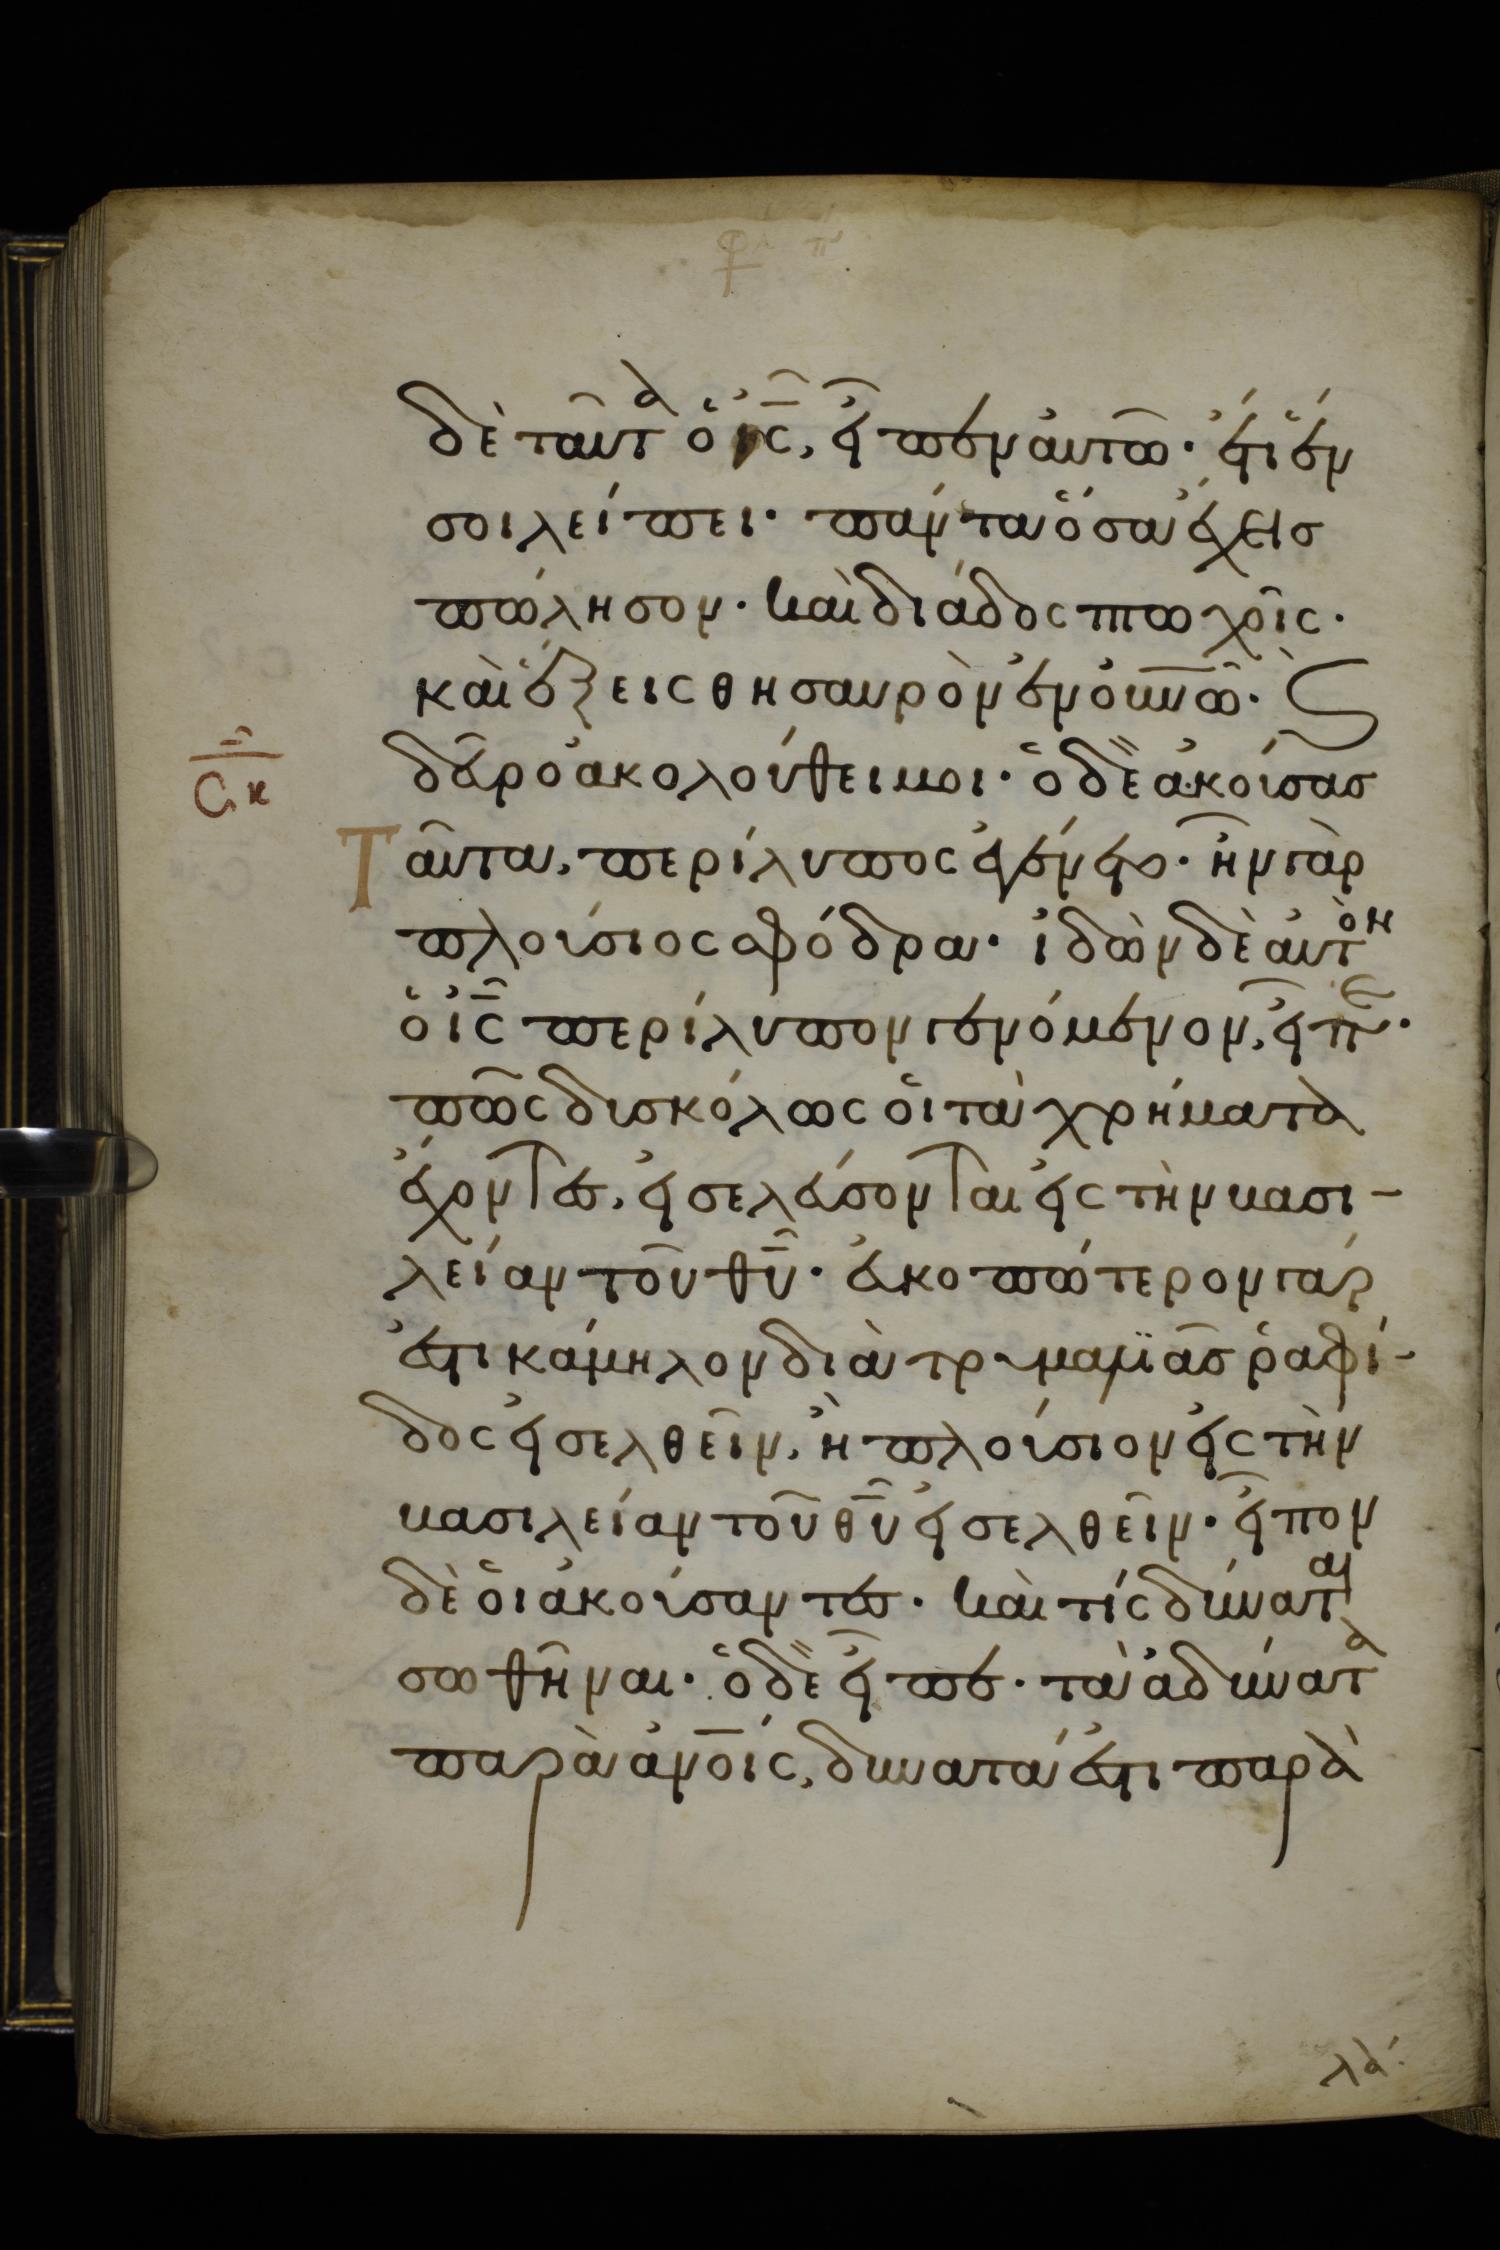 δὲ ταῦτα ὁ ἰς̅, εἶπεν αὐτῶ· ἔτι ἕν
σοι λείπει· πάντα ὅσα ἔχεις
πώλησον· καὶ διάδος πτωχοῖς·
καὶ ἕξεις θησαυρὸν ἐν οὐνῶ· καὶ
δεῦρο ἀκολούθει μοι· ὁ δὲ ἀκούσας
ταῦτα, περίλυπος ἐγένετο· ἦν γὰρ
πλούσιος σφόδρα· ἰδὼν δὲ αὐτὸν
ὁ ἰς̅ περίλυπον γενόμενον, εἶπεν·
πῶς δυσκόλως οἱ τὰ χρήματα
ἔχοντες, εἰσελεύσονται εἰς τὴν βασι-
λείαν τοῦ θυ̅· εὐκοπώτερον γάρ
ἐστι κάμηλον διὰ τρυμαλϊᾶς ῥαφί-
δος εἰσελθεῖν, ἢ πλούσιον εἰς τὴν
βασιλείαν τοῦ θυ̅ εἰσελθεῖν· εἶπον
δὲ οἱ ἀκούσαντες· καὶ τίς δύναται
σωθῆναι· ὁ δὲ εἶπε· τὰ ἀδύνατα
παρὰ ἀνοις, δυνατά ἐστι παρὰ
λα·